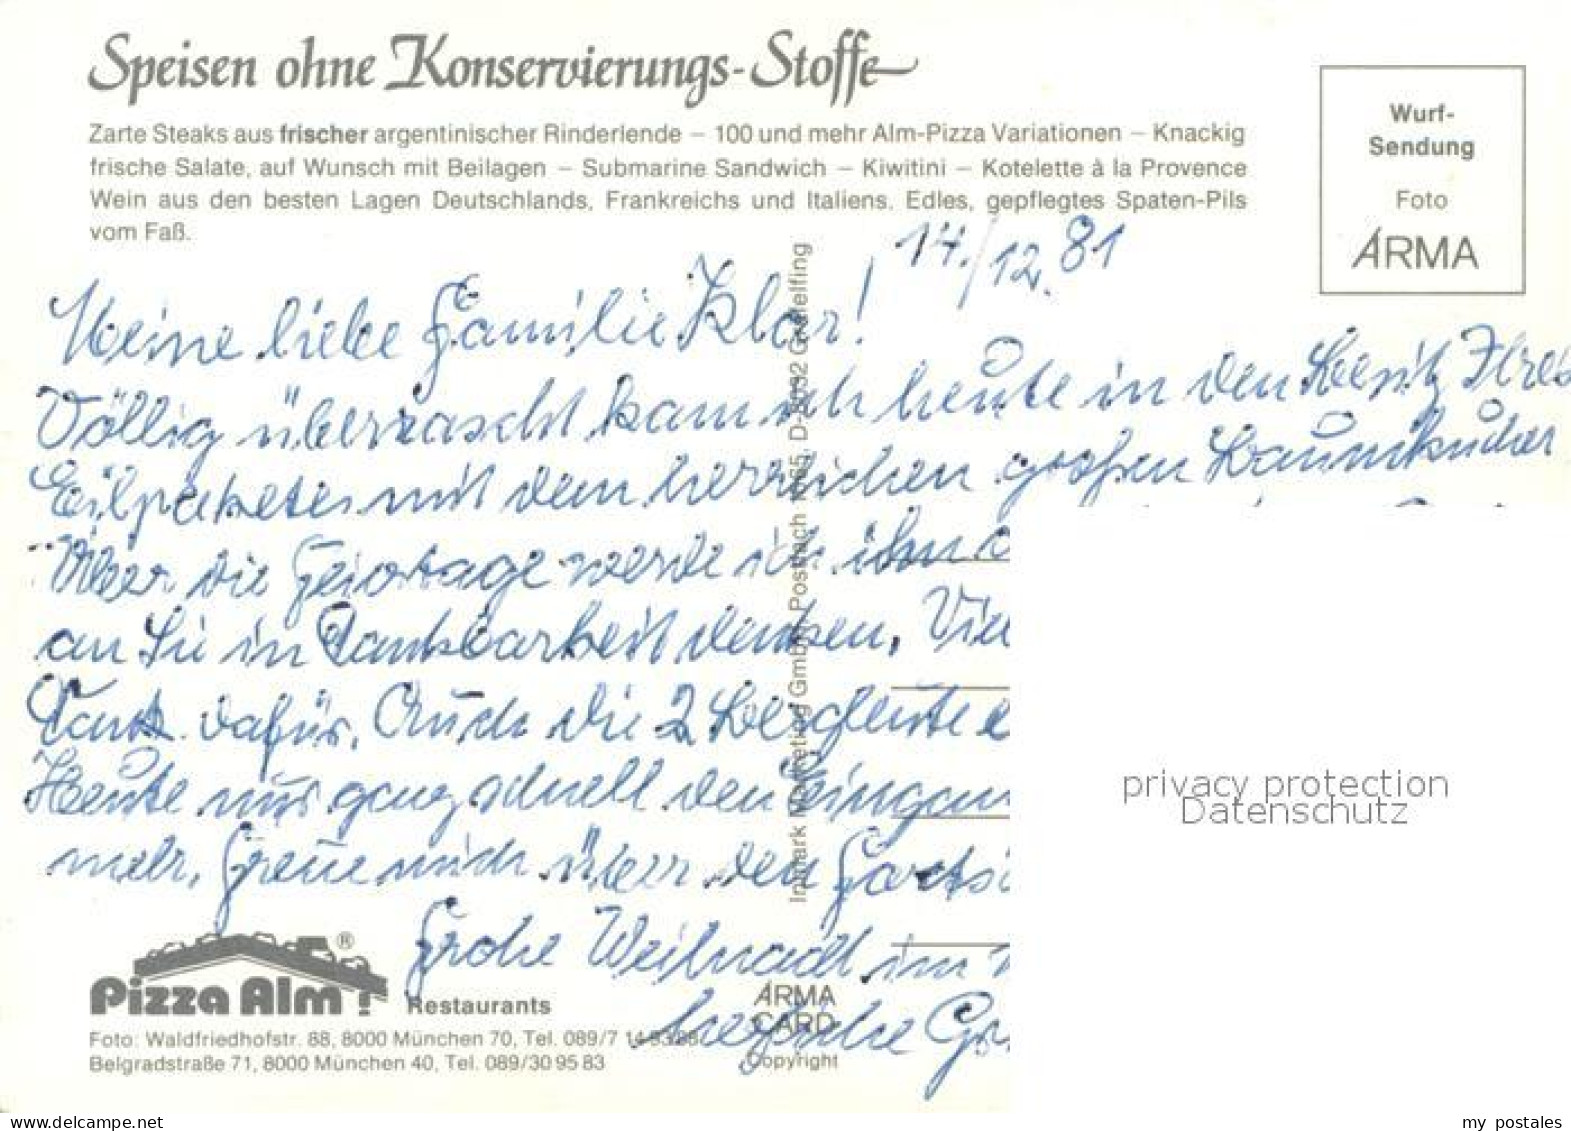 Speisen ohne Konservierungs-Stoffe
Zarte Steaks aus frischer argentinischer Rinderlende – 100 und mehr Alm-Pizza Variationen – Knackig
frische Salate, auf Wunsch mit Beilagen – Submarine Sandwich – Kiwitini – Kotelette à la Provence
Wein aus den besten Lagen Deutschlands, Frankreichs und Italiens. Edles, gepflegtes Spaten-Pils
vom Faß.
Wurf-
Sendung
Foto
ARMA
14./12.81
Meine liebe Familie Klar!
Völlig überrascht kam ich heute in den Besitz Ihres
Eilpaketes mit dem herrlichen großen Baumkuchen
Über die Feiertage werde ich ihn
an Sie in Dankbarkeit denken. Viel
Dank dafür. Auch die 2 Bergleute
Heute nur ganz schnell den Eingan
mehr. Freue mich über den
Frohe Weihnacht im
herzliche Gr
Inmark Marketing GmbH, Postfach 1165, D-8032 Gräfelfing
Pizza Alm ! ®
Restaurants
Foto: Waldfriedhofstr. 88, 8000 München 70, Tel. 089/7 14 93 88
Belgradstraße 71, 8000 München 40, Tel. 089/30 95 83
ARMA
CARD
Copyright
privacy protection
Datenschutz
www.delcampe.net
my_postales